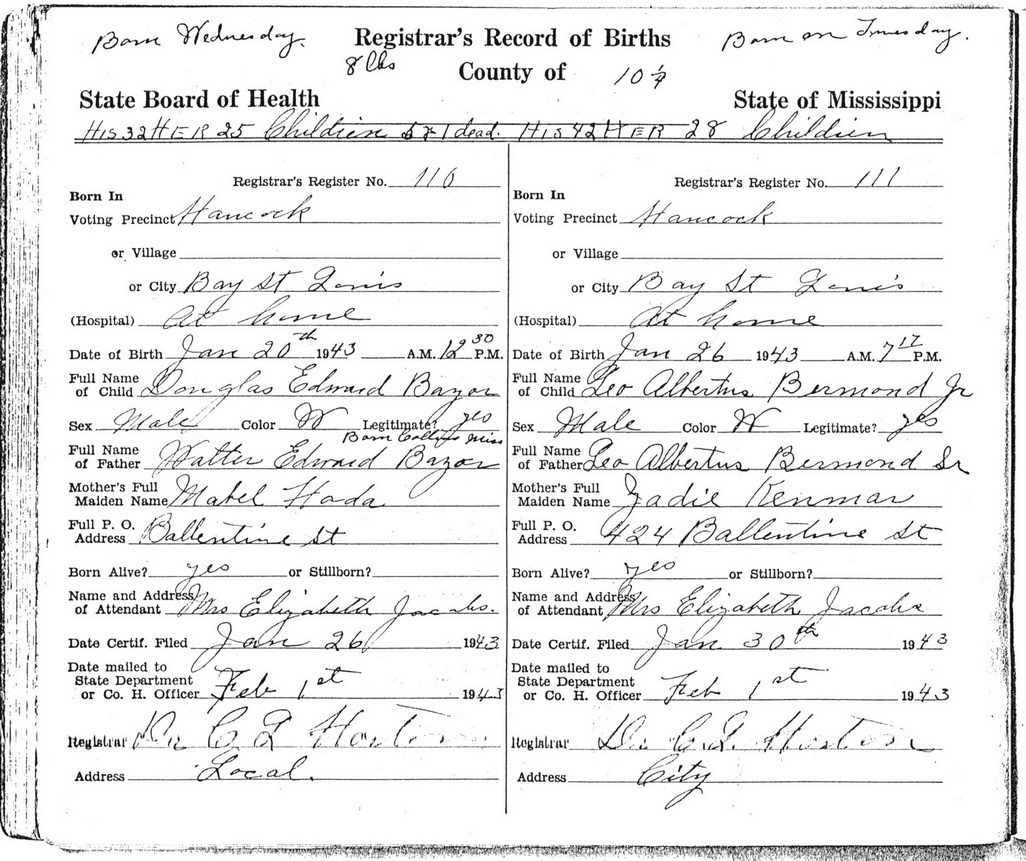 Born Wednesday. Registrar's Record of Births Born on Tuesday.
8 lbs County of 10 1/4
State Board of Health State of Mississippi
HIS 32 HER 25 Children 1 dead. HIS 42 HER 28 Children
Registrar's Register No. 110
Born In
Voting Precinct Hancock
or Village
or City Bay St Louis
(Hospital) At home
Date of Birth Jan 20th 1943 A.M. 12 30 P.M.
Full Name
of Child Douglas Edward Bazor
Sex Male Color W Legitimate? yes
Born Collins Miss
Full Name
of Father Walter Edward Bazor
Mother's Full
Maiden Name Mabel Hoda
Full P. O.
Address Ballentine St
Born Alive? yes or Stillborn?
Name and Address
of Attendant Mrs Elizabeth Jacobs.
Date Certif. Filed Jan 26 1943
Date mailed to
State Department
or Co. H. Officer Feb 1st 1943
Registrar Dr C. L. Horton
Address Local.
Registrar's Register No. 111
Born In
Voting Precinct Hancock
or Village
or City Bay St Louis
(Hospital) At home
Date of Birth Jan 26 1943 A.M. 7 17 P.M.
Full Name
of Child Leo Albertus Bermond Jr
Sex Male Color W Legitimate? yes
Full Name
of Father Leo Albertus Bermond Sr
Mother's Full
Maiden Name Zadie Kenmar
Full P. O.
Address 424 Ballentine St
Born Alive? yes or Stillborn?
Name and Address
of Attendant Mrs Elizabeth Jacobs
Date Certif. Filed Jan 30th 1943
Date mailed to
State Department
or Co. H. Officer Feb 1st 1943
Registrar Dr C. L. Horton
Address City